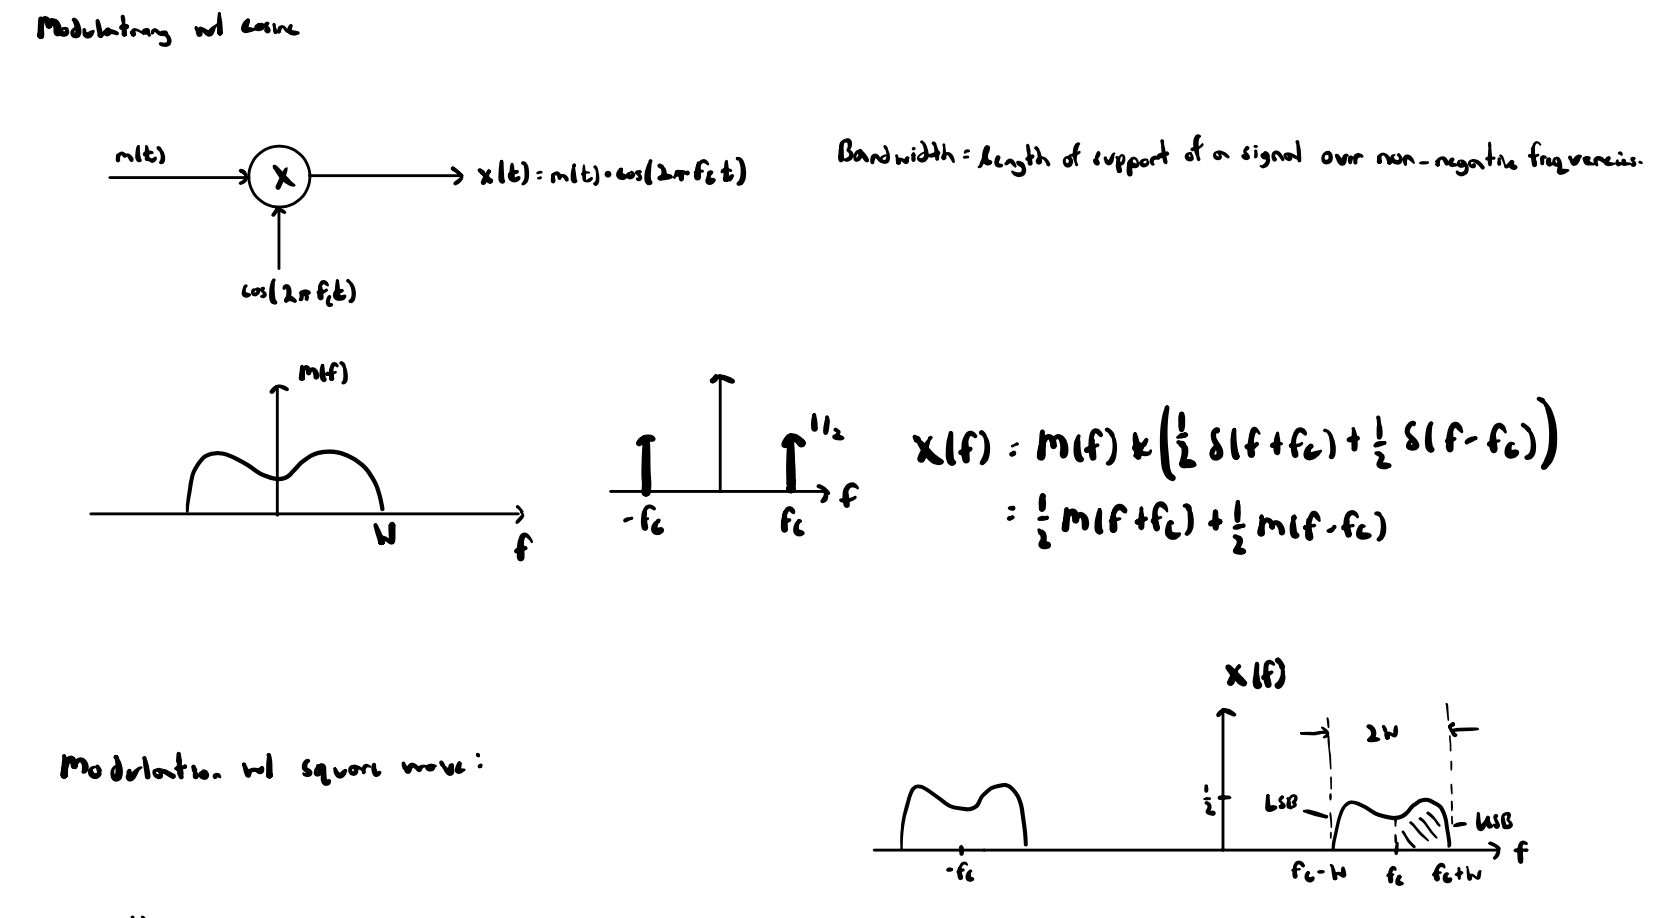 Modulating w/ cosine
m(t)
X
x(t) = m(t) · cos(2πf_c t)
cos(2πf_c t)
Bandwidth = length of support of a signal over non-negative frequencies.
M(f)
W
f
1/2
-f_c
f_c
f
X(f) = M(f) * (1/2 δ(f+f_c) + 1/2 δ(f-f_c))
= 1/2 M(f+f_c) + 1/2 M(f-f_c)
X(f)
2W
1/2
LSB
USB
f
-f_c
f_c-W
f_c
f_c+W
Modulation w/ square wave: